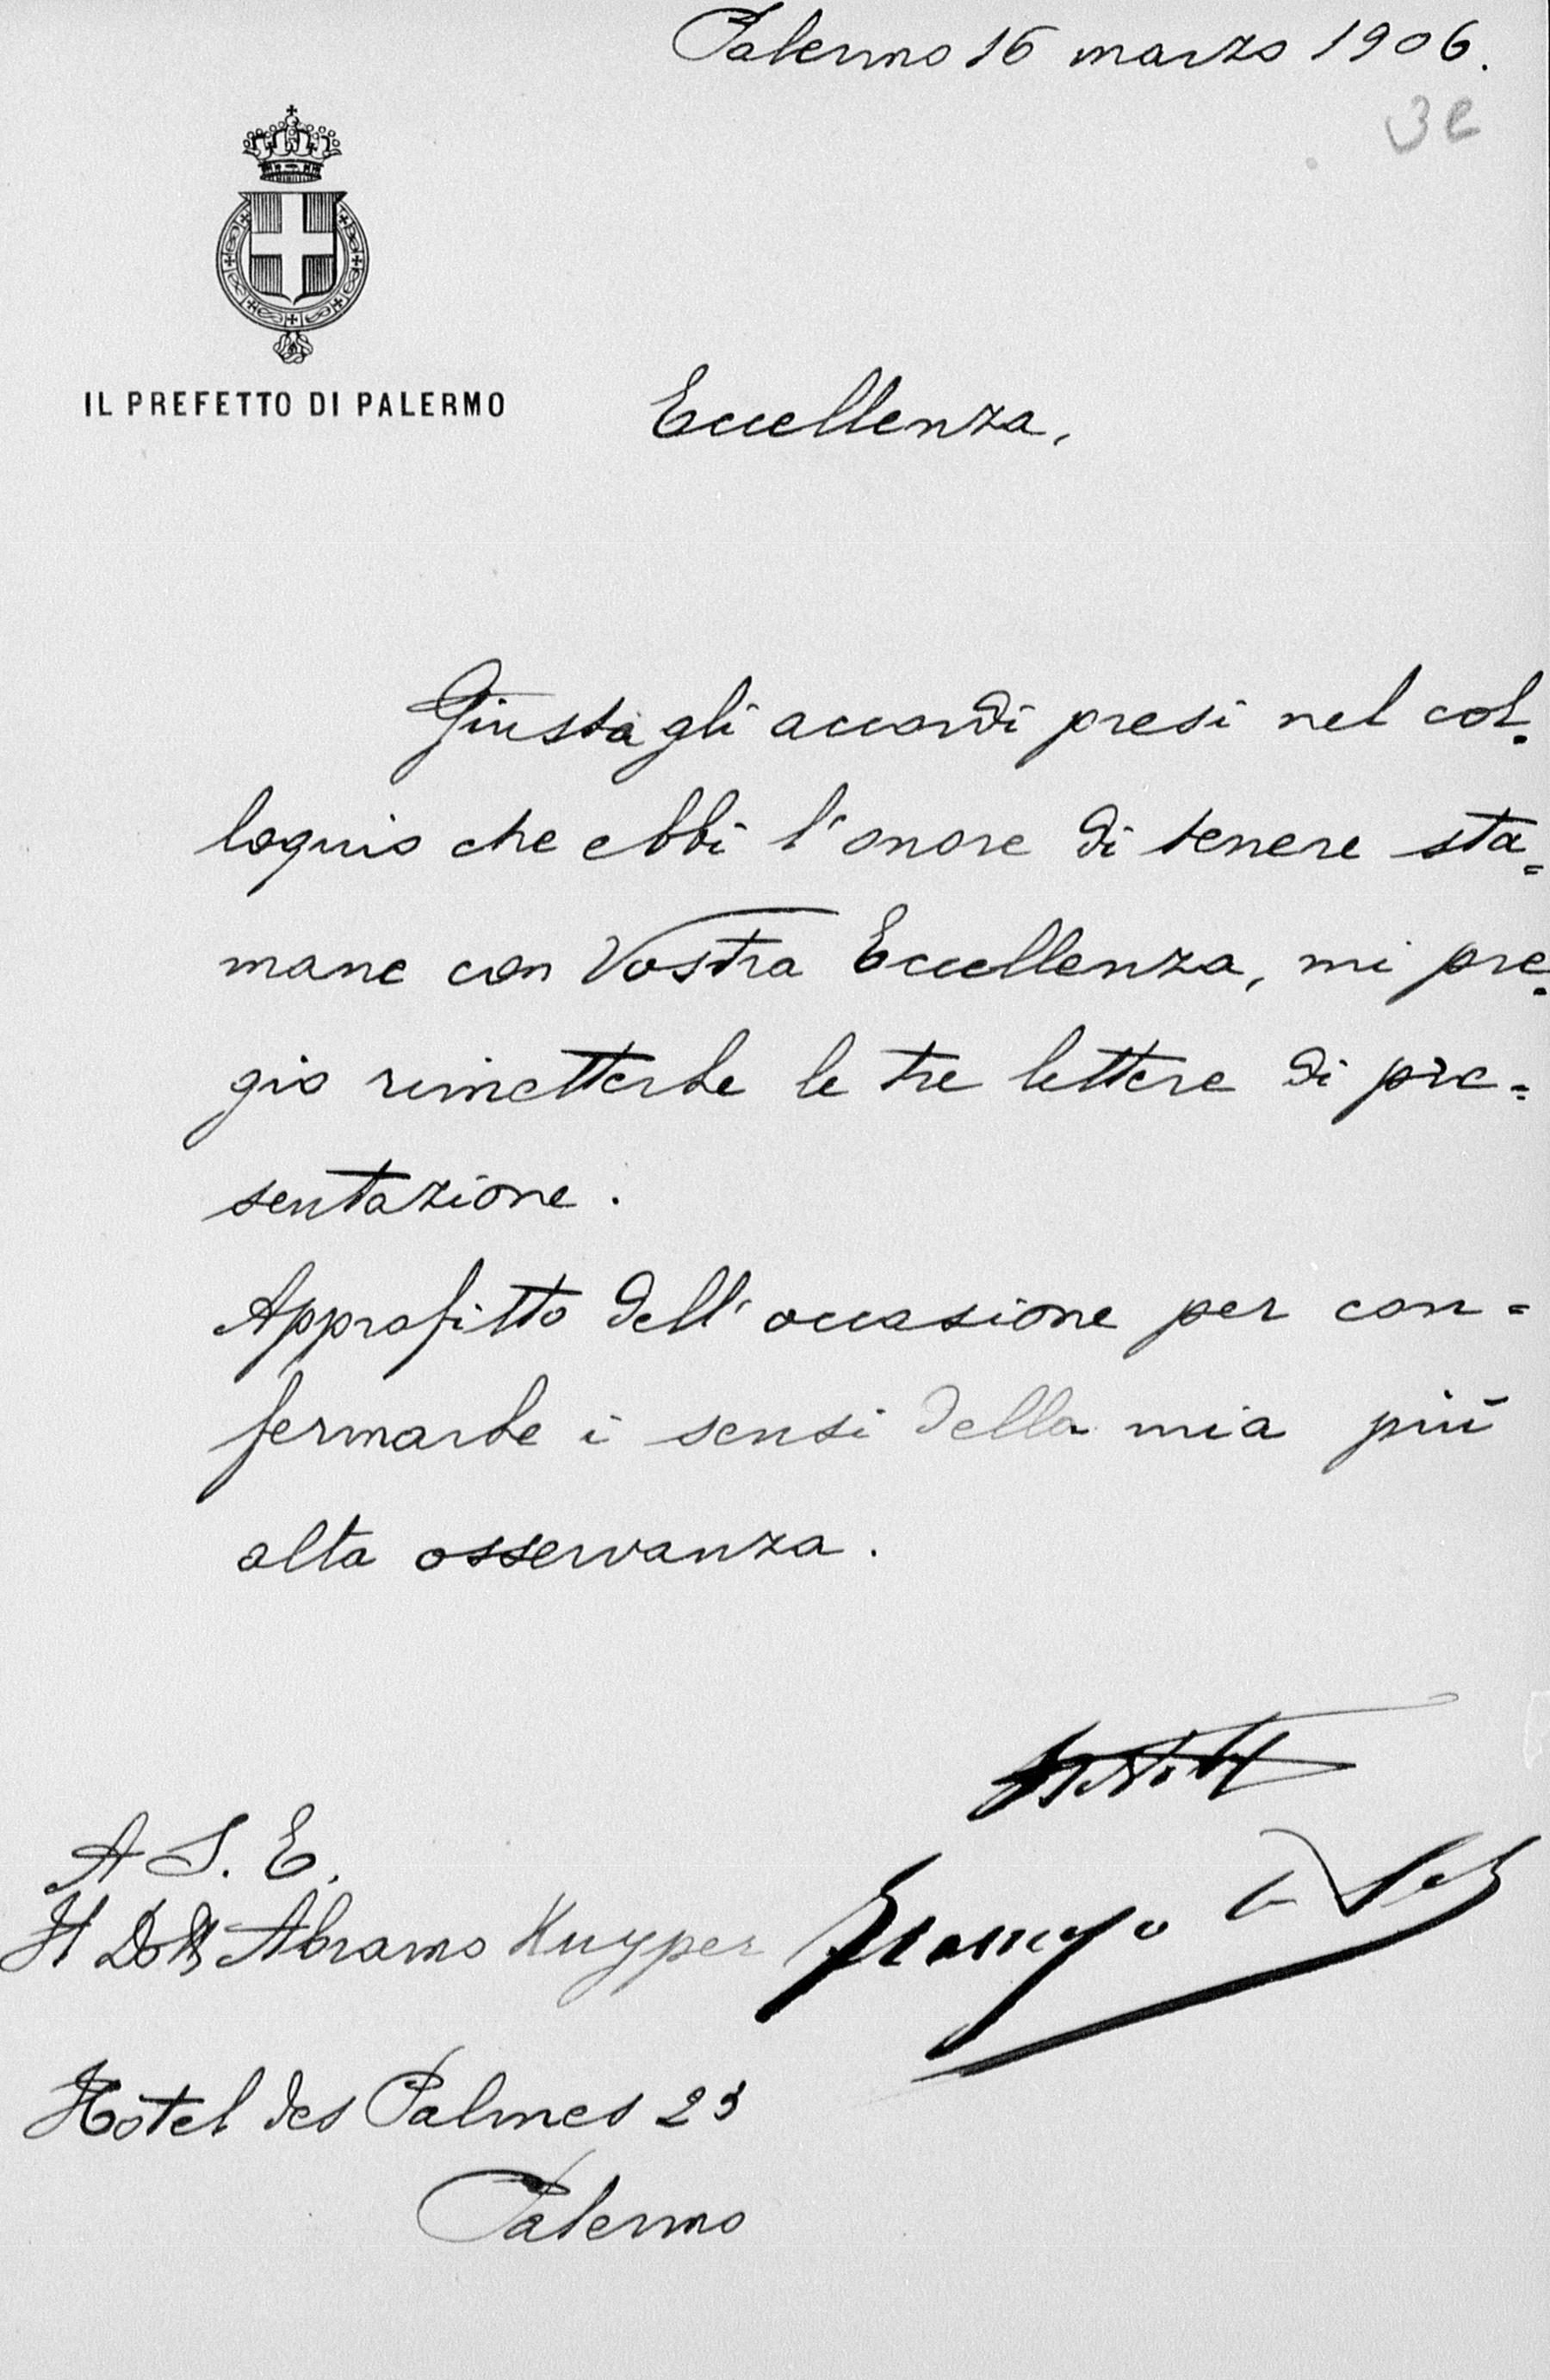 Palermo 16 marzo 1906.
3e
IL PREFETTO DI PALERMO
Eccellenza,
Giusta gli accordi presi nel col-
loquio che ebbi l'onore di tenere sta=
mane con Vostra Eccellenza, mi pre-
gio rimetterLe le tre lettere di pre=
sentazione.
Approfitto dell'occasione per con=
fermarLe i sensi della mia più
alta osservanza.
A S. E.
Il Dott Abramo Kuyper
Hôtel des Palmes 23
Palermo